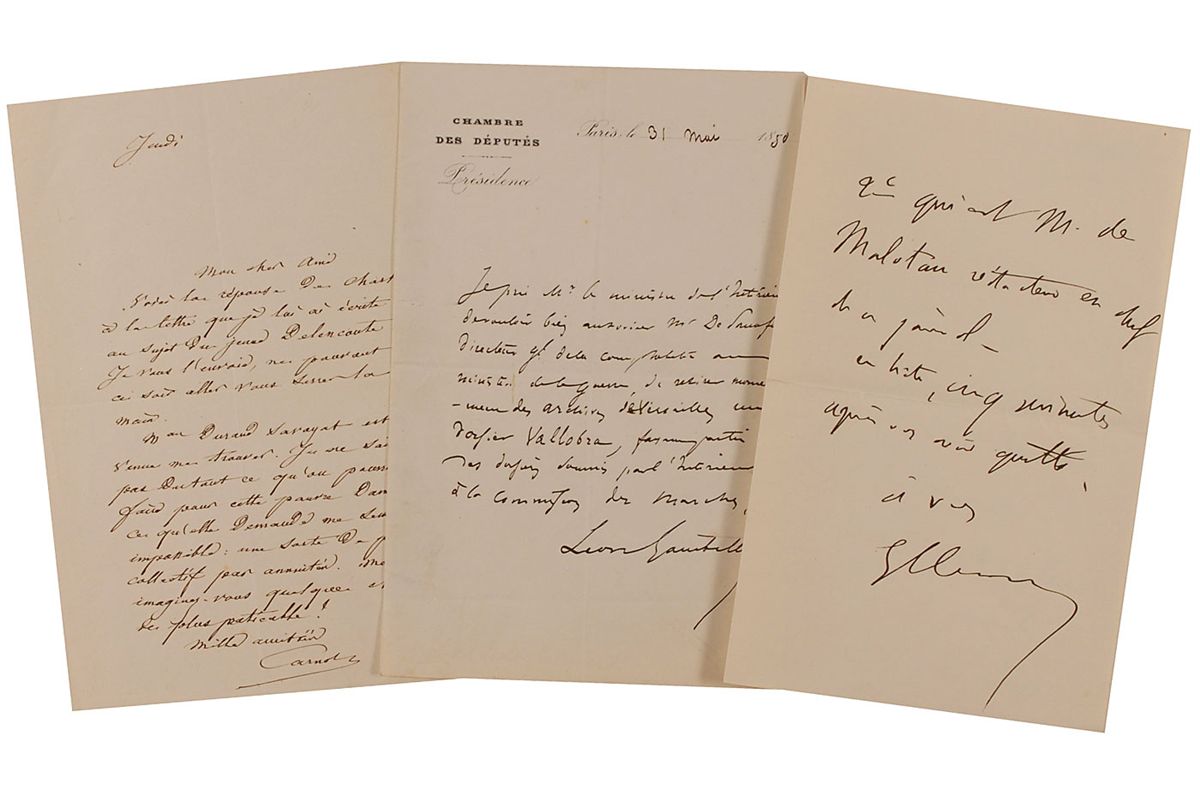 Jeudi
Mon cher Ami
Voici la réponse de
à la lettre que je lui ai écrite
au sujet du jeune Delencoute
Je vous l'envoie, ne pouvant
ce soir aller vous serrer la
main.
Mme Durand Savoyat est
venue me trouver. Je ne sai
pas du tout ce qu'on pour
faire pour cette pauvre Dam
ce qu'elle demande me sem
impossible: une sorte de p
collectif par annuités.
imaginez-vous quelque
des plus praticable!
Mille amitiés
Carnot
CHAMBRE
DES DÉPUTÉS
Présidence
Paris, le 31 Mai 1880
Je prie Mr le ministre de l'Intérieu
de vouloir bien autoriser Mr De
Directeur gl de la comptabilité au
ministère de la guerre, de retirer mome
-ment des archives de Versailles un
dossier Vallobra, faisant partie
des dossiers soumis par l'Intérieur
à la commission des marchés.
Leon Gambett
qui est M. de
Malotau rédacteur en chef
du journal
en hâte, cinq minutes
après vous avoir quitté.
à vous